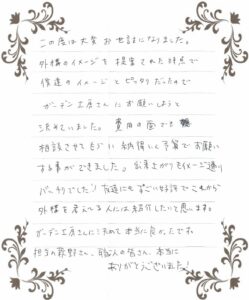 この度は大変お世話になりました。
外構のイメージを提案された時点で
僕達のイメージとピッタリだったので
ガーデン工房さんにお願いしようと
決めていました。費用の面でも
相談させてもらい納得いく予算でお願い
する事ができました。出来上がりもイメージ通り
バッチリでした！友達にもすごい好評で これから
外構を考える人には紹介したいと思います。
ガーデン工房さんに決めて本当に良かったです。
担当の萩野さん、職人の皆さん、本当に
ありがとうございました！